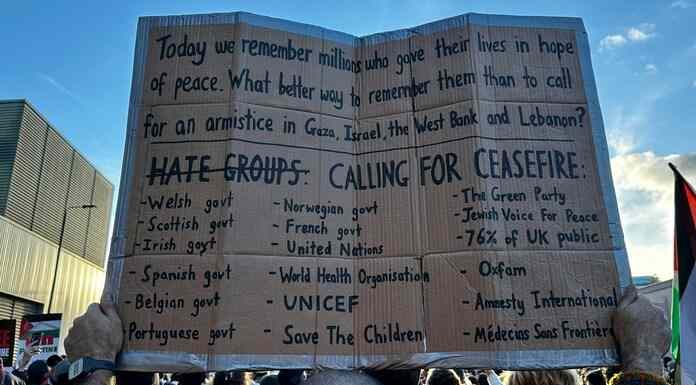 Today we remember millions who gave their lives in hope
of peace. What better way to remember them than to call
for an armistice in Gaza, Israel, the West Bank and Lebanon?
HATE GROUPS. CALLING FOR CEASEFIRE:
- Welsh govt
- Scottish govt
- Irish govt
- Spanish govt
- Belgian govt
Portuguese govt
- Norwegian govt
- French govt
- United Nations
- World Health Organisation
- UNICEF
- Save The Children
- The Green Party
- Jewish Voice For Peace
- 76% of UK public
- Oxfam
- Amnesty International
- Médecins Sans Frontière